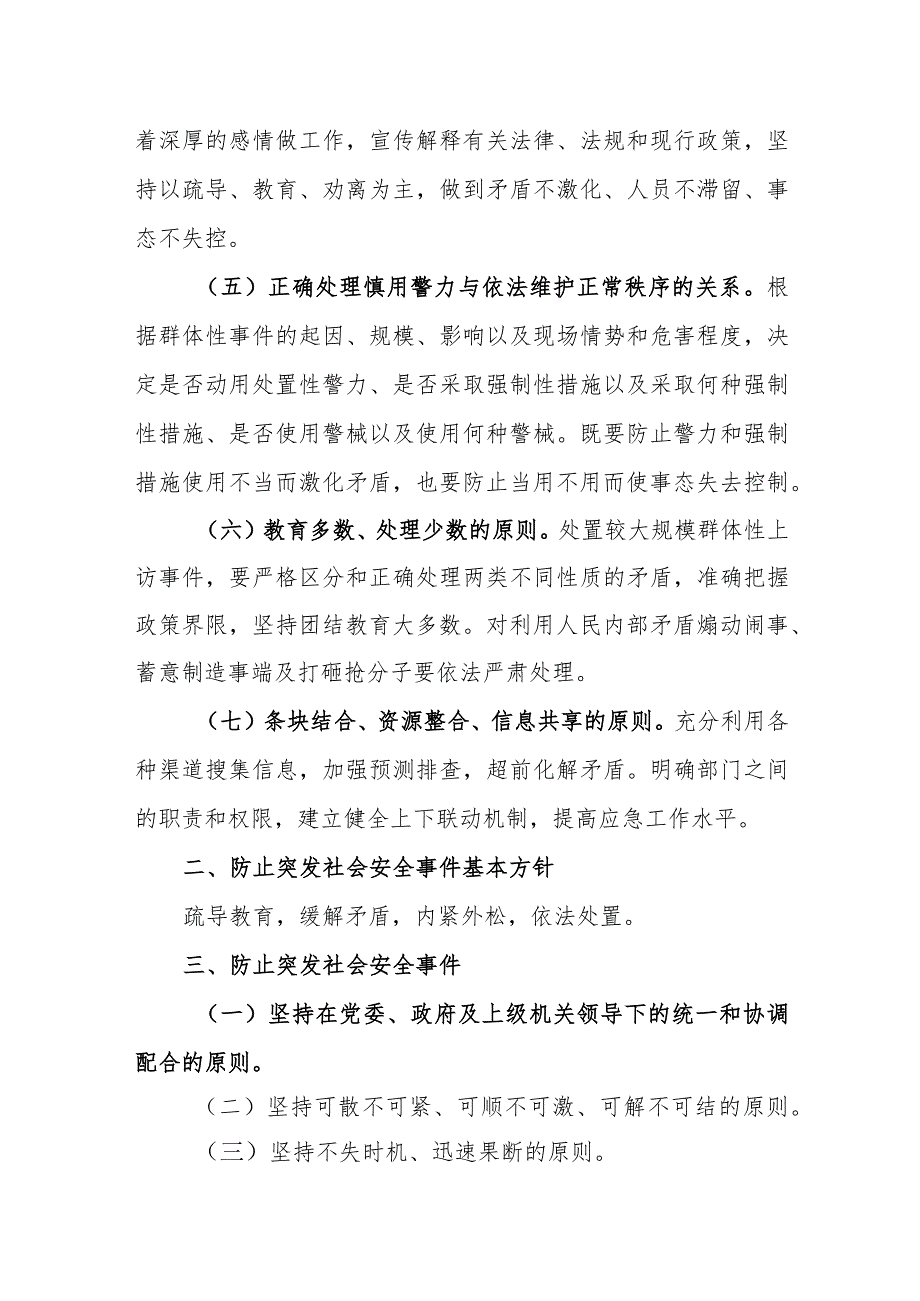 着深厚的感情做工作，宣传解释有关法律、法规和现行政策，坚
持以疏导、教育、劝离为主，做到矛盾不激化、人员不滞留、事
态不失控。
（五）正确处理慎用警力与依法维护正常秩序的关系。根
据群体性事件的起因、规模、影响以及现场情势和危害程度，决
定是否动用处置性警力、是否采取强制性措施以及采取何种强制
性措施、是否使用警械以及使用何种警械。既要防止警力和强制
措施使用不当而激化矛盾，也要防止当用不用而使事态失去控制。
（六）教育多数、处理少数的原则。处置较大规模群体性上
访事件，要严格区分和正确处理两类不同性质的矛盾，准确把握
政策界限，坚持团结教育大多数。对利用人民内部矛盾煽动闹事、
蓄意制造事端及打砸抢分子要依法严肃处理。
（七）条块结合、资源整合、信息共享的原则。充分利用各
种渠道搜集信息，加强预测排查，超前化解矛盾。明确部门之间
的职责和权限，建立健全上下联动机制，提高应急工作水平。
二、防止突发社会安全事件基本方针
疏导教育，缓解矛盾，内紧外松，依法处置。
三、防止突发社会安全事件
（一）坚持在党委、政府及上级机关领导下的统一和协调
配合的原则。
（二）坚持可散不可紧、可顺不可激、可解不可结的原则。
（三）坚持不失时机、迅速果断的原则。